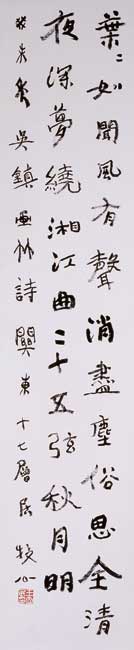 葉葉如聞風有聲消盡塵俗思全清
夜深夢繞湘江曲二十五弦秋月明
癸未冬吳鎮画竹詩關東十七層民牧心